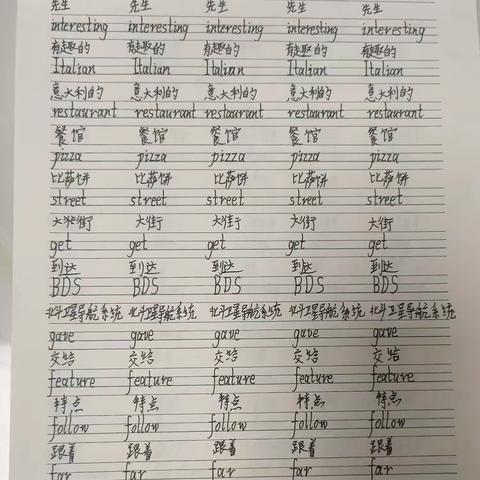 先生 先生 先生 先生 先生
interesting interesting interesting interesting interesting
有趣的 有趣的 有趣的 有趣的 有趣的
Italian Italian Italian Italian Italian
意大利的 意大利的 意大利的 意大利的 意大利的
restaurant restaurant restaurant restaurant restaurant
餐馆 餐馆 餐馆 餐馆 餐馆
pizza pizza pizza pizza pizza
比萨饼 比萨饼 比萨饼 比萨饼 比萨饼
street street street street street
大街 大街 大街 大街 大街
get get get get get
到达 到达 到达 到达 到达
BDS BDS BDS BDS BDS
北斗卫星导航系统 北斗卫星导航系统 北斗卫星导航系统 北斗卫星导航系统 北斗卫星导航系统
gave gave gave gave gave
交给 交给 交给 交给 交给
feature feature feature feature feature
特点 特点 特点 特点 特点
follow follow follow follow follow
跟着 跟着 跟着 跟着 跟着
far far far far far